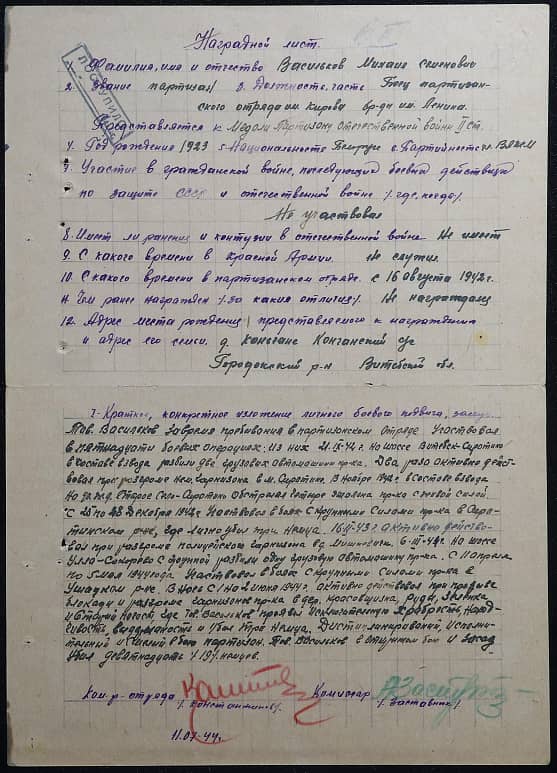 Наградной лист.
ПОСТУПИЛ
1. Фамилия, имя и отчество Васильков Михаил Семенович
2. Звание партизан 3. Должность, часть Боец партизан-
ского отряда им. Кирова бр-ды им. Ленина.
Представляется к Медали Партизану Отечественной войны II ст.
4. Год рождения 1923 5. Национальность Белорус 6. Партийность ВЛКСМ
7. Участие в гражданской войне, последующих боевых действиях
по защите СССР и отечественной войне /где, когда/
Не участвовал
8. Имеет ли ранения и контузии в отечественной войне Не имеет
9. С какого времени в Красной Армии. Не служил.
10. С какого времени в партизанском отряде. с 16 августа 1942 г.
11. Чем ранее награжден /за какия отличия/. Не награжден
12. Адрес места рождения представляемого к награждению
и адрес его семьи. д.
Городокский р-н Витебской обл.
I. Краткое, конкретное изложение личного боевого подвига,
Тов. Васильков за время пребывания в партизанском отряде участвовал
в пятнадцати боевых операциях: из них 21.IX-42 г. на шоссе Витебск-Сиротино
в составе взвода разбили две грузовых автомашины пр-ка. Два раза активно дейст-
вовал при разгроме нем. гарнизона в м. Сиротино. В ноябре 1942 г в составе взвода
на ж.д. Старое Село-Сиротино обстрелял четыре эшелона пр-ка с живой силой.
С 25 по 28 декабря 1942 г. участвовал в боях с крупными силами пр-ка в Сиро-
тинском р-не, где лично убил три немца. 16.II-43 г активно действо-
вал при разгроме полицейского гарнизона в д. 6-III-43 г. на шоссе
Улла-Сокорово с группой разбили одну грузовую автомашину пр-ка. С 11 апреля
по 5 мая 1944 года участвовал в боях с крупными силами пр-ка в
Ушачском р-не. В ночь с 1 на 2 июня 1944 г. активно действовал при прорыве
блокады и разгроме гарнизонов пр-ка в дер. Красовщизна, Рудня,
и Старый Погост, где тов. Васильков проявил исключительную храбрость, наход-
чивость, выдержанность и убил трёх немцев. Дисциплинированный, исполни-
тельный партизан. Тов. Васильков в открытом бою и засад.
убил девятнадцать /19/ немцев.
Ком-р отряда Комиссар
/Константинов/ /Заставник/
11.07-44 г.